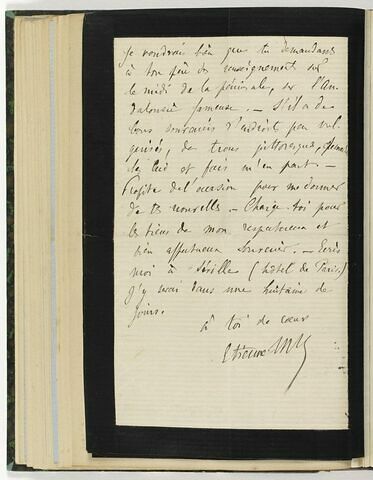 Je voudrais bien que tu demandasses
à ton père des renseignements sur
le midi de la péninsule, sur l'An
dalousie fameuse. — S'il a de
bons souvenirs d'endroits peu vul
garisés, de trous pittoresques,
et fais m'en part. —
Profite de l'occasion pour me donner
de tes nouvelles — Charge toi pour
les tiens de mon respectueux et
bien affectueux souvenir. — Ecris
moi à Séville (hôtel de Paris)
J'y serai dans une huitaine de
jours.
à toi de cœur
Etienne